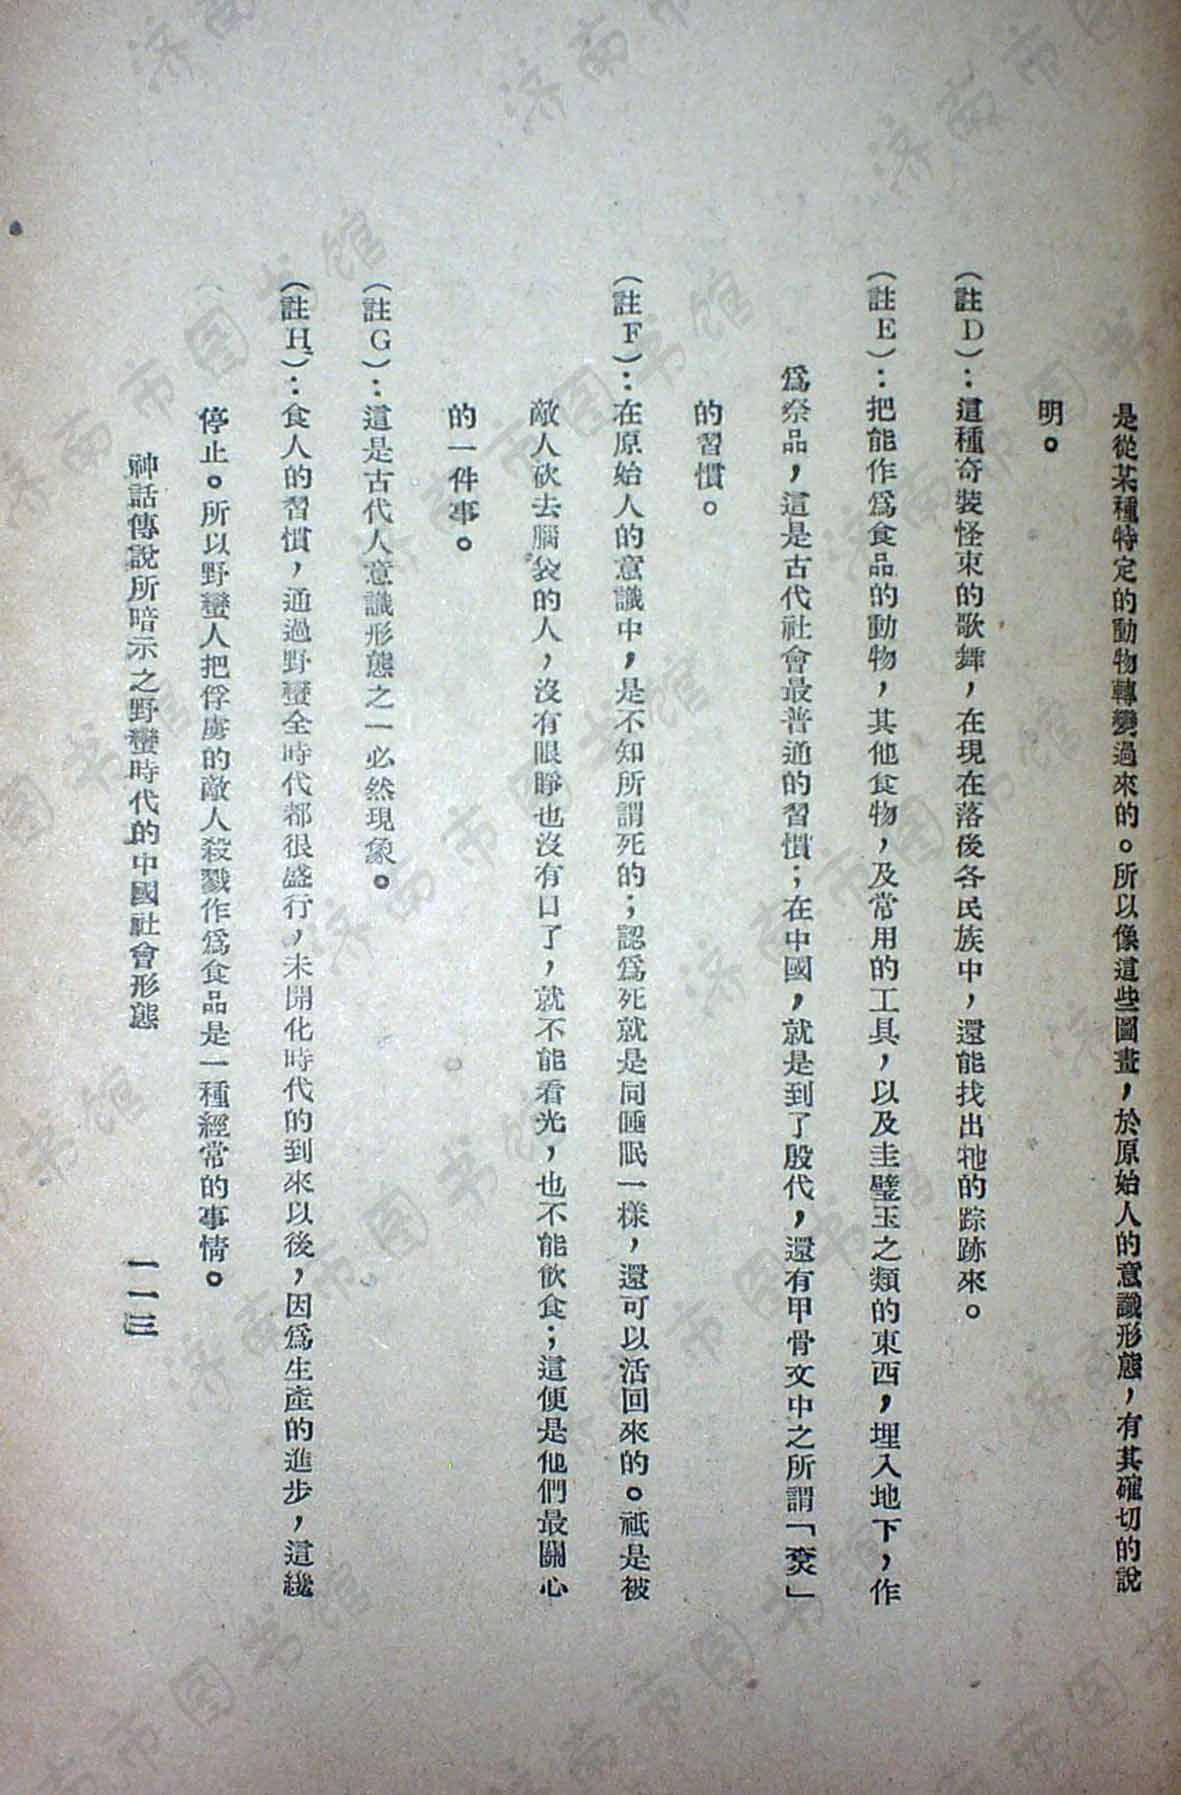 是從某種特定的動物轉變過來的。所以像這些圖畫，於原始人的意識形態，有其確切的說
明。
（註D）：這種奇裝怪束的歌舞，在現在落後各民族中，還能找出牠的踪跡來。
（註E）：把能作爲食品的動物，其他食物，及常用的工具，以及圭璧玉之類的東西，埋入地下，作
爲祭品，這是古代社會最普通的習慣；在中國，就是到了殷代，還有甲骨文中之所謂「」
的習慣。
（註F）：在原始人的意識中，是不知所謂死的；認爲死就是同睡眠一樣，還可以活回來的。祗是被
敵人砍去腦袋的人，沒有眼睜也沒有口了，就不能看光，也不能飲食；這便是他們最關心
的一件事。
（註G）：這是古代人意識形態之一必然現象。
（註H）：食人的習慣，通過野蠻全時代都很盛行，未開化時代的到來以後，因爲生產的進步，這纔
停止。所以野蠻人把俘虜的敵人殺戮作爲食品是一種經常的事情。
神話傳說所暗示之野蠻時代的中國社會形態
一一三
济南市图书馆